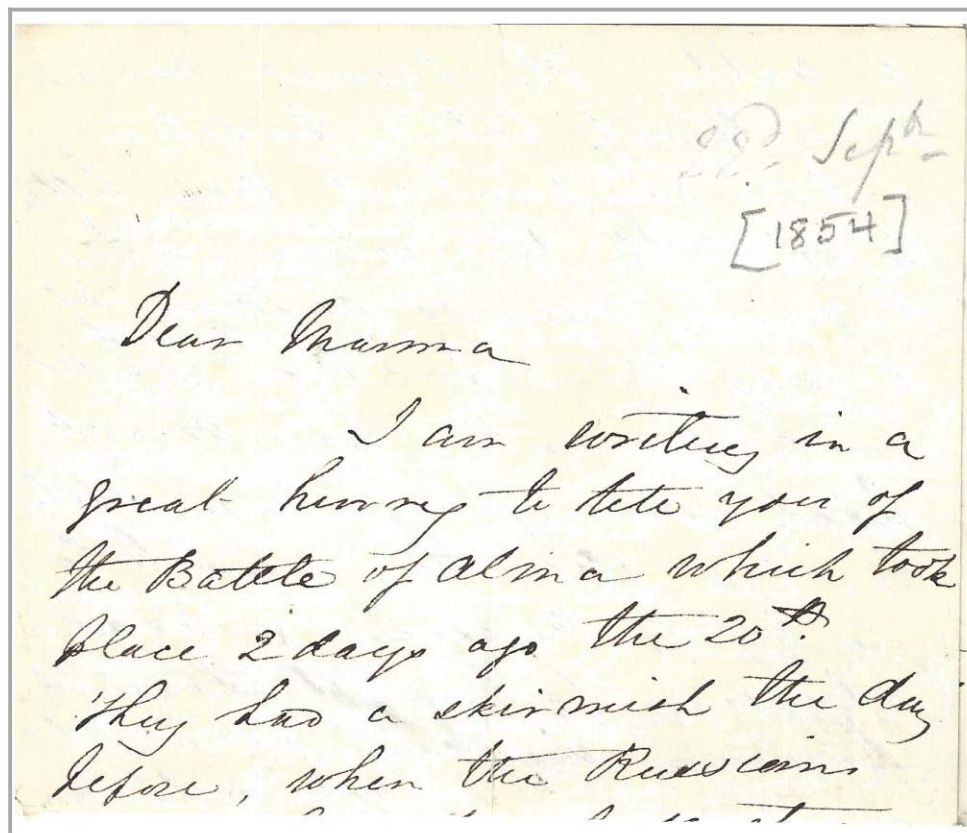 22d Septr
[1854]
Dear Mamma
I am writing in a
great hurry to tell you of
the Battle of Alma which took
place 2 days ago the 20th.
They had a skirmish the day
before, when the Russians